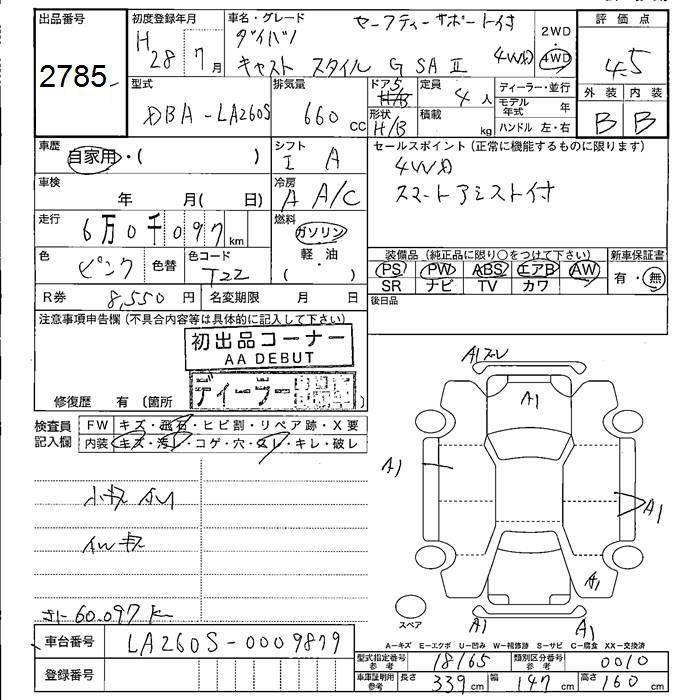 出品番号
2785
初度登録年月
H28 7月
車名・グレード
セーフティーサポート付
ダイハツ
キャスト スタイル G SA II 4WD
2WD
4WD
評価点
4.5
外装 内装
B B
型式
DBA-LA260S
排気量
660 cc
ドア 5
H/B
形状
H/B
定員
4人
積載
kg
ディーラー・並行
モデル年式 年
ハンドル 左・右
車歴
自家用・( )
シフト
I A
セールスポイント (正常に機能するものに限ります)
4WD
スマートアシスト付
車検
年 月( 日)
冷房
A A/C
走行
6万0千097 km
燃料
ガソリン
軽・油
( )
色
ピンク
色替
色コード
T22
装備品 (純正品に限り○をつけて下さい)
PS PW ABS エアB AW
SR ナビ TV カワ
新車保証書
有・無
R券 8,550円
名変期限 月 日
後日品
注意事項申告欄 (不具合内容等は具体的に記入して下さい)
初出品コーナー
AA DEBUT
ディーラー
修復歴 有 (箇所
検査員
記入欄
FW キズ・飛石・ヒビ割・リペア跡・X要
内装 キズ・汚れ・コゲ・穴・スレ・キレ・破レ
小キズ AU
AWキズ
60.097K
A1ズレ
A1
A1
A1
A1
A1
A1
スペア
A-キズ E-エクボ U-凹み W-補修跡 S-サビ C-腐食 XX-交換済
車台番号
LA260S-0009879
登録番号
型式指定番号 参考
18165
類別区分番号 参考
0010
車庫証明用 参考
長さ 339cm 幅 147cm 高さ 160cm